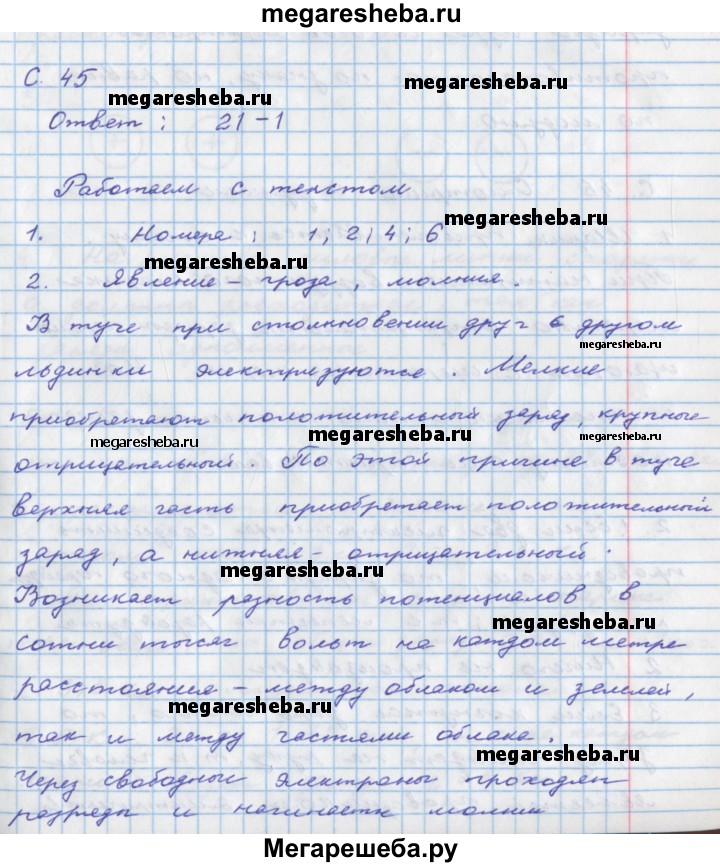 megaresheba.ru
С. 45
megaresheba.ru
megaresheba.ru
Ответ : 21-1
Работаем с текстом
megaresheba.ru
1. Номера : 1; 2; 4; 6
megaresheba.ru
2. Явление - гроза, молния.
В туче при столкновении друг с другом
megaresheba.ru
льдинки электризуются. Мелкие
приобретают положительный заряд, крупные
megaresheba.ru megaresheba.ru megaresheba.ru
отрицательный. По этой причине в туче
верхняя часть приобретает положительный
заряд, а нижняя - отрицательный.
megaresheba.ru
Возникает разность потенциалов в
megaresheba.ru
сотни тысяч вольт на каждом метре
расстояния - между облаком и землей,
megaresheba.ru
так и между частями облака.
megaresheba.ru
Через свободный электроны проходят
разряды и
megaresheba.ru
Мегарешеба.ру